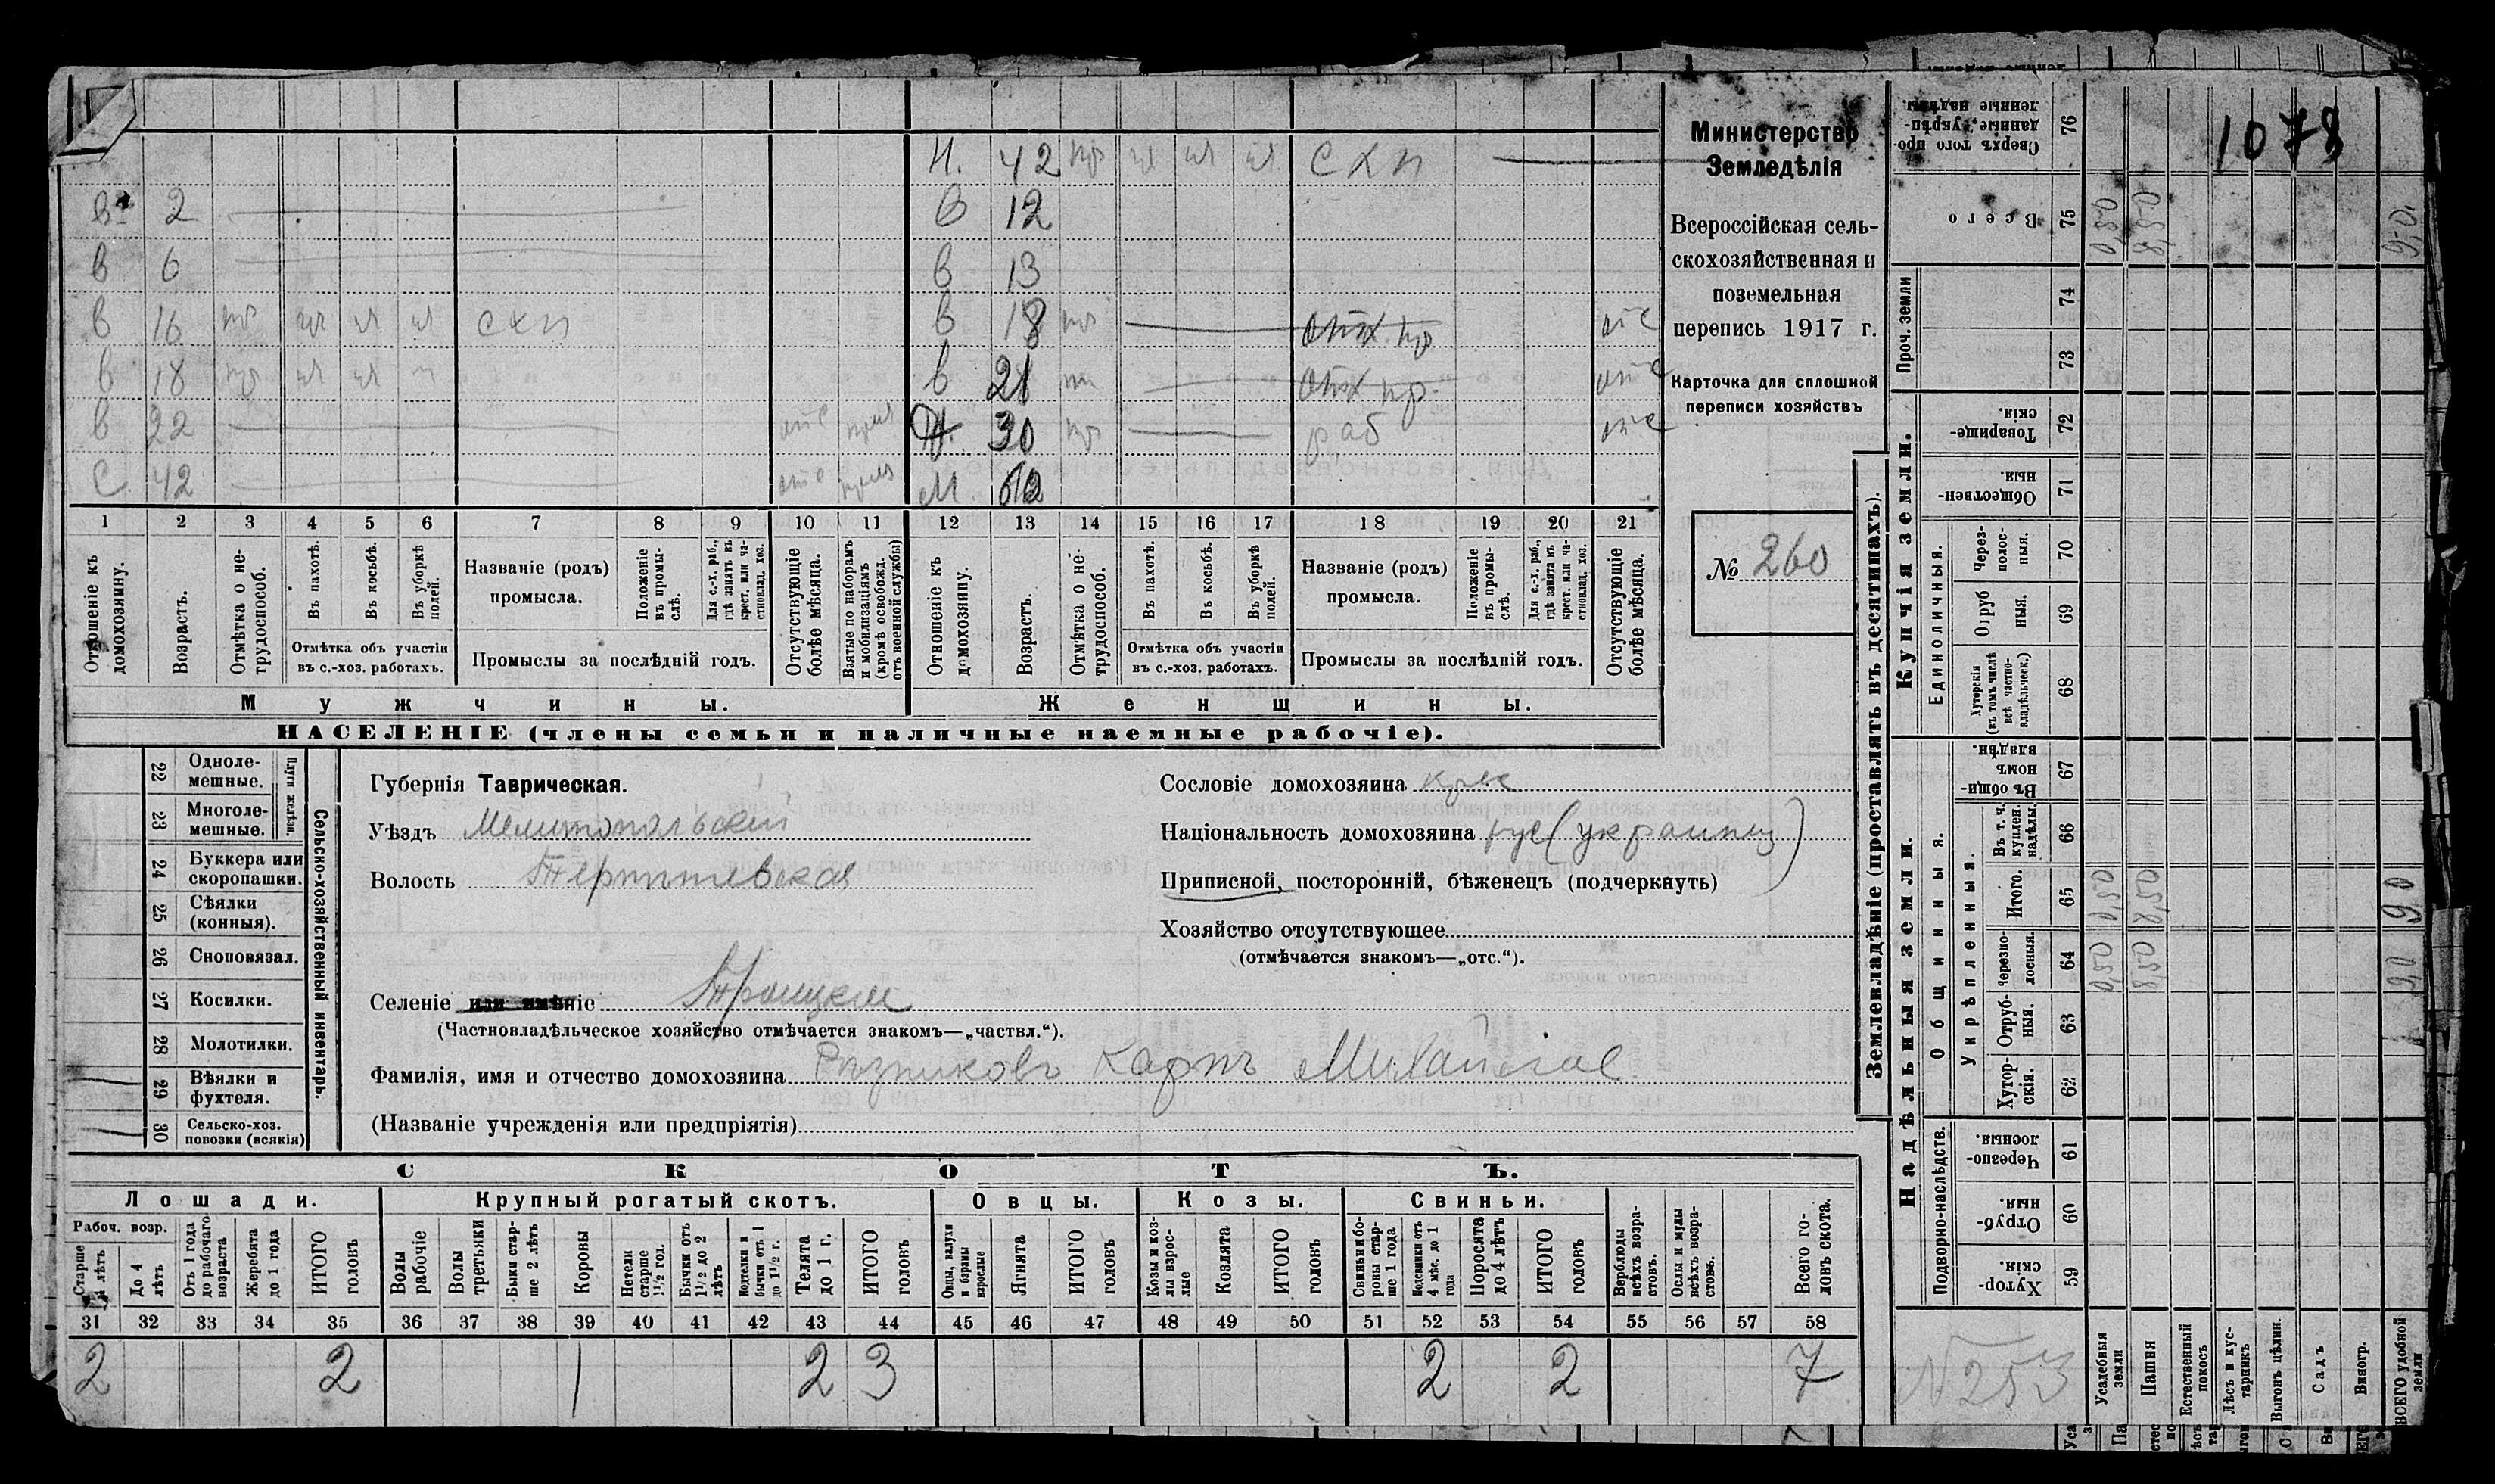 1078
Н. 42 пр ил ил ил СХП
в 2 в 12
в 6 в 13
в 16 пр ил ил ил СХП в 18 пр отх. пр отс
в 18 пр ил ил в 21 отх пр. отс
в 22 отс 30 пр раб отс
С 42 отс М.
1 2 3 4 5 6 7 8 9 10 11 12 13 14 15 16 17 18 19 20 21
Отношеніе къ домохозяину.
Возрастъ.
Отмѣтка о не-трудоспособ.
Въ пахотѣ.
Въ косьбѣ.
Въ уборкѣ полей.
Отмѣтка объ участіи
въ с.-хоз. работахъ.
Названіе (родъ)
промысла.
Положеніе въ промы-слѣ.
Для с.-х. раб., гдѣ занятъ въ крест. или ча-стновлад. хоз.
Промыслы за послѣдній годъ.
Отсутствующіе болѣе мѣсяца.
Взятые по наборамъ и мобилизаціямъ (кромѣ освобожд. отъ военной службы)
Отношеніе къ домохозяину.
Возрастъ.
Отмѣтка о не-трудоспособ.
Въ пахотѣ.
Въ косьбѣ.
Въ уборкѣ полей.
Отмѣтка объ участіи
въ с.-хоз. работахъ.
Названіе (родъ)
промысла.
Положеніе въ промы-слѣ.
Для с.-х. раб., гдѣ занята въ крест. или ча-стновлад. хоз.
Промыслы за послѣдній годъ.
Отсутствующіе болѣе мѣсяца.
Мужчины.
Женщины.
НАСЕЛЕНІЕ (члены семьи и наличные наемные рабочіе).
Министерство
Земледѣлія
Всероссійская сель-
скохозяйственная и
поземельная
перепись 1917 г.
Карточка для сплошной
переписи хозяйствъ
№ 260
22 Одноле-мешные.
23 Многоле-мешные.
Плуги желѣзн.
24 Буккера или скоропашки.
25 Сѣялки (конныя).
26 Сноповязал.
27 Косилки.
28 Молотилки.
29 Вѣялки и фухтеля.
30 Сельско-хоз. повозки (всякія)
Сельско-хозяйственный инвентарь.
Губернія Таврическая.
Уѣздъ Мелитопольскій
Волость
Селеніе или имѣніе Троицкое
(Частновладѣльческое хозяйство отмѣчается знакомъ—„частвл.“).
Фамилія, имя и отчество домохозяина Рѣзниковъ Карпъ
(Названіе учрежденія или предпріятія)
Сословіе домохозяина крес
Національность домохозяина рус (украинец)
Приписной, посторонній, бѣженецъ (подчеркнуть)
Хозяйство отсутствующее
(отмѣчается знакомъ—„отс.“).
СКОТЪ.
Лошади.
Крупный рогатый скотъ.
Овцы.
Козы.
Свиньи.
Рабоч. возр.
Старше 4 лѣтъ
До 4 лѣтъ
Отъ 1 года до рабочаго возраста
Жеребята до 1 года
ИТОГО головъ
Волы рабочіе
Волы третьяки
Быки стар-ше 2 лѣтъ
Коровы
Нетели старше 1½ год.
Бычки отъ 1½ до 2 лѣтъ
Подтелки и бычки отъ 1 до 1½ г.
Телята до 1 г.
ИТОГО головъ
Овцы, валухи и бараны взрослые
Ягнята
ИТОГО головъ
Козы и коз-лы взрос-лые
Козлята
ИТОГО головъ
Свиньи и бо-роны стар-ше 1 года
Подсвинки отъ 4 мѣс. до 1 года
Поросята до 4 лѣтъ
ИТОГО головъ
Верблюды всѣхъ возра-стовъ.
Ослы и мулы всѣхъ возра-стовъ.
Всего го-ловъ скота.
31 32 33 34 35 36 37 38 39 40 41 42 43 44 45 46 47 48 49 50 51 52 53 54 55 56 57 58
2 2 1 2 3 2 2 7
Землевладѣніе (проставлять въ десятинахъ).
Купчія земли.
Надѣльныя земли.
Сверхъ того про-данные, укрѣп-ленные надѣлы. 76
Всего 75 0,50 8,50 9,0
Проч. земли 74 73
Товарище-скія. 72
Обществен-ныя 71
Единоличныя.
Через-полос-ныя. 70
Отруб-ныя. 69
Хуторскія (въ томъ числѣ всѣ частно-владѣльческ.) 68
Общинныя.
Въ общи-номъ владѣн. 67
Укрѣпленныя.
Въ т. ч. куплен. надѣлы. 66
Итого. 65 0,50 8,50 9,0
черезпо-лосныя. 64 0,50 8,50 9,0
Отруб-ныя. 63
Хутор-скія. 62
Подворно-наслѣдств.
Черезпо-лосныя. 61
Отруб-ныя 60
Хутор-скія. 59
N 253
Усадебныя земли
Пашня
Естественный покосъ
Лѣсъ и кус-тарникъ
Выгонъ цѣлин.
Садъ
Виногр.
ВСЕГО удобной земли